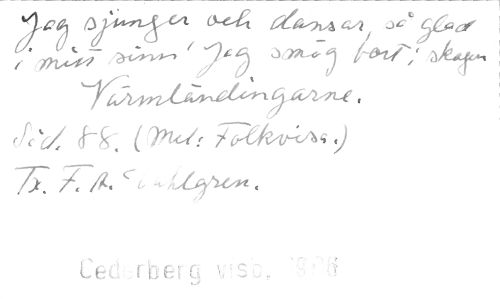 Jag sjunger och dansar så glad
i mitt sinn' Jag smög bort i skogen
Värmländingarne.
Sid. 88. (Mel: Folkvisa.)
Tx. F. A. Dahlgren.
Cederberg visb.